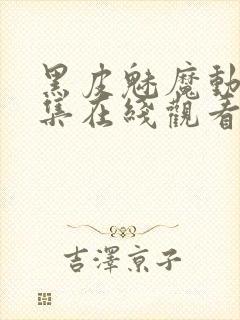 黑皮魅魔動
集在綫觀看
吉澤京子